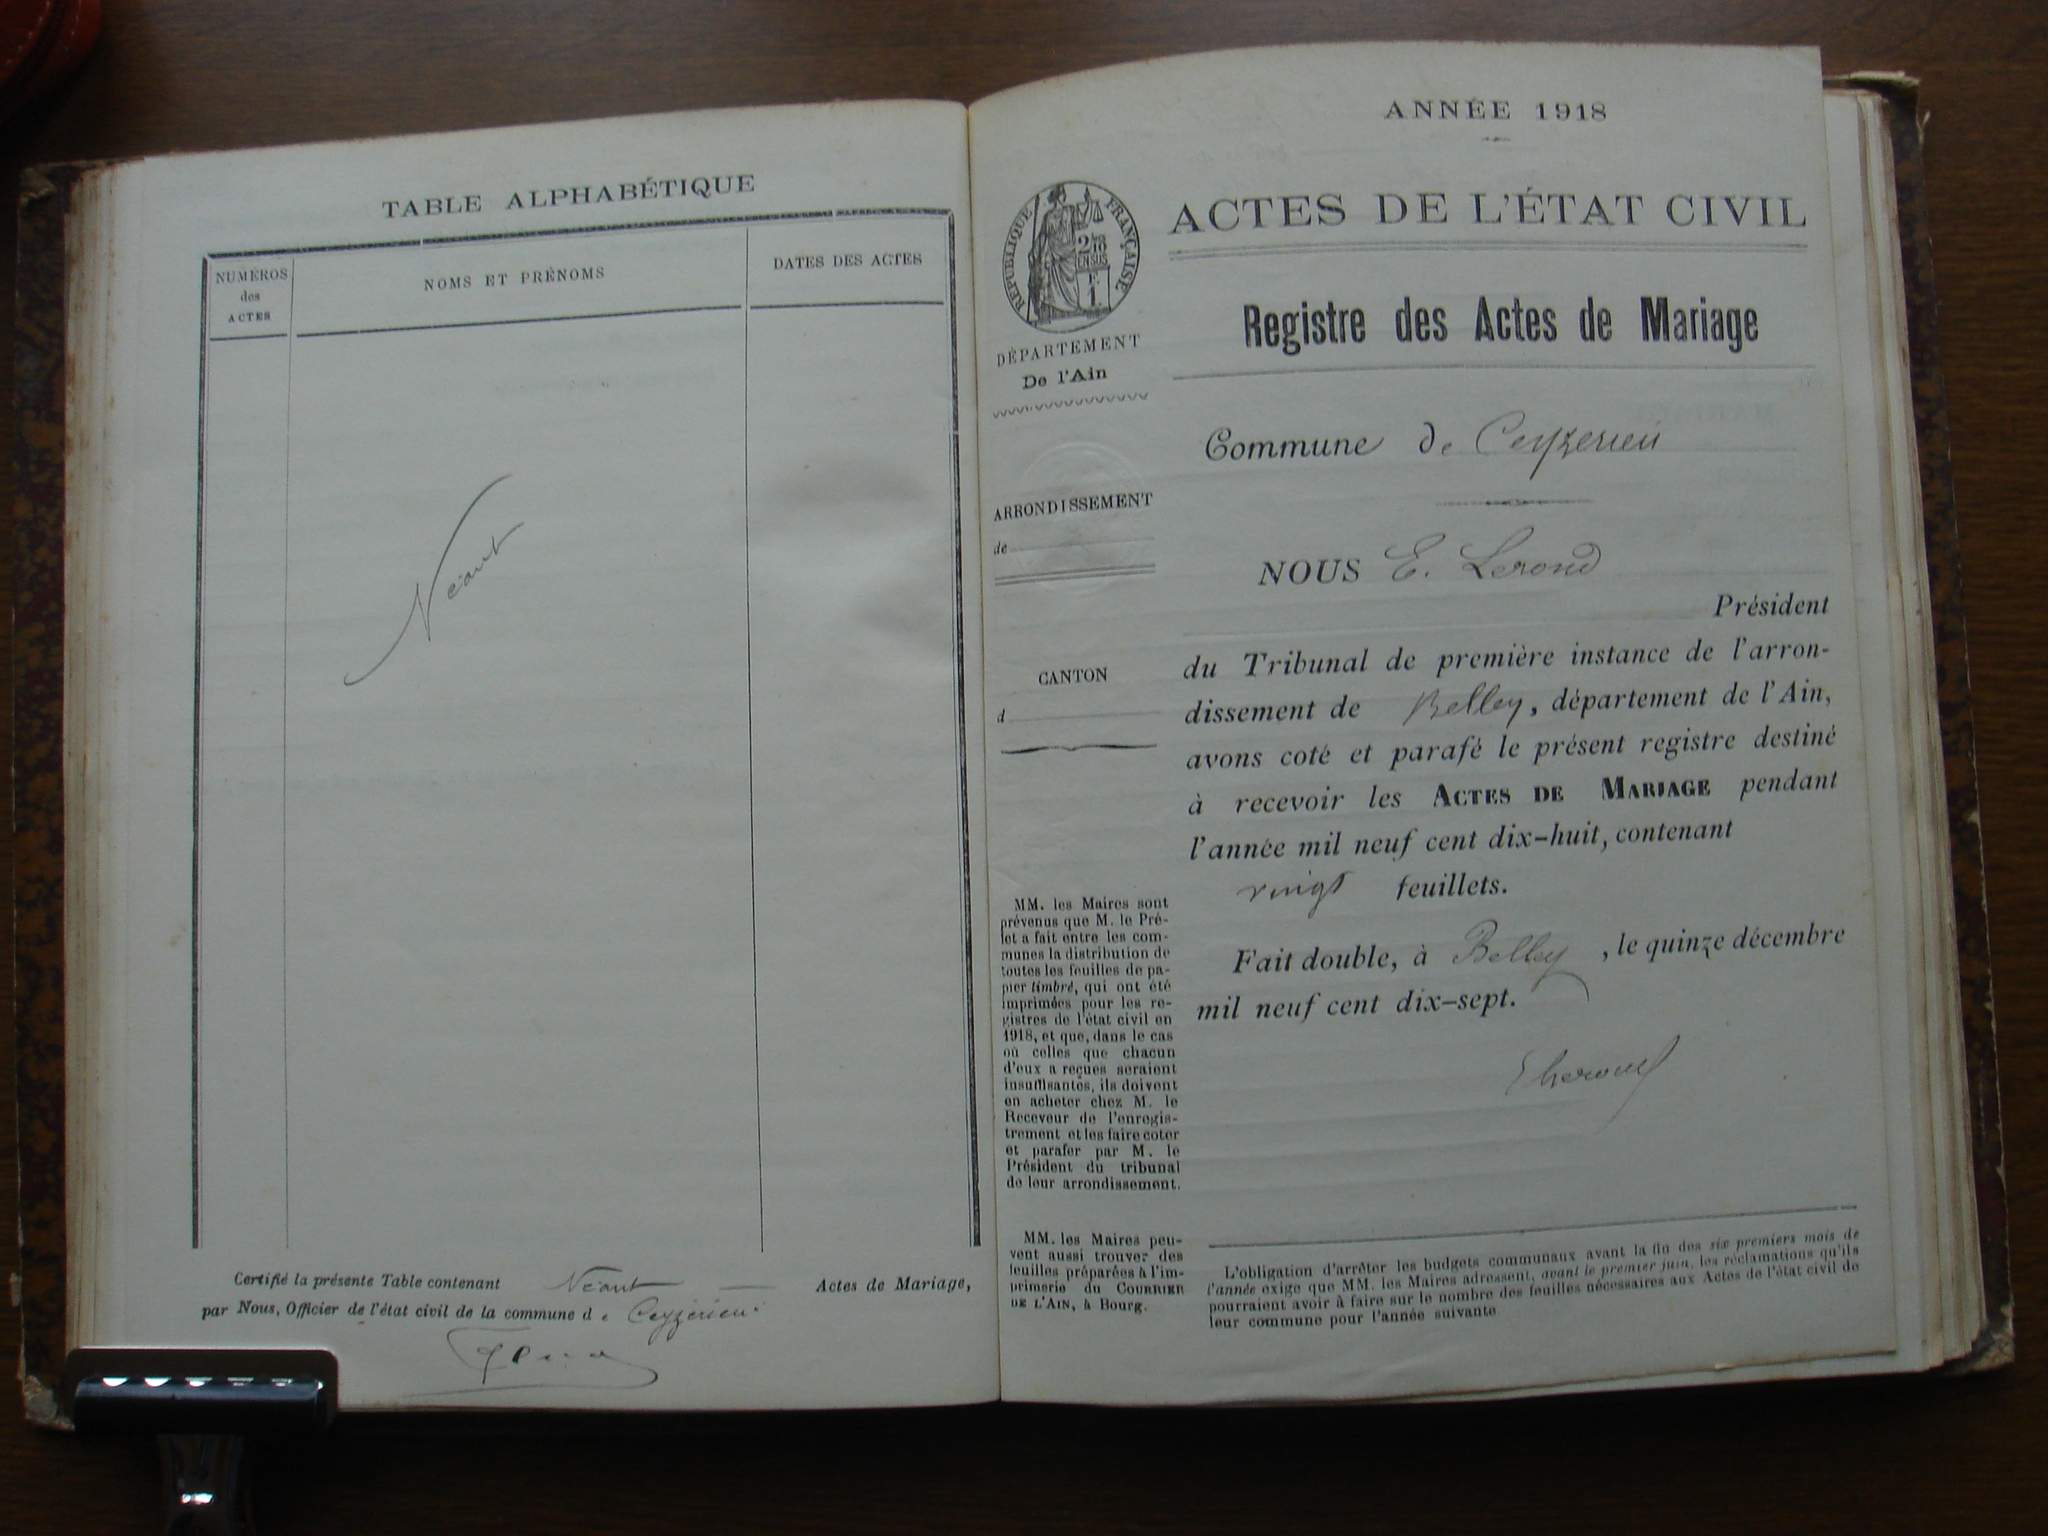 TABLE ALPHABÉTIQUE
NUMÉROS
des
ACTES
NOMS ET PRÉNOMS
DATES DES ACTES
Néant
Certifié la présente Table contenant Néant — Actes de Mariage,
par Nous, Officier de l'état civil de la commune de Ceyzérieu
ANNÉE 1918
RÉPUBLIQUE FRANÇAISE
2/10
EN SUS
F.
1.
DÉPARTEMENT
De l'Ain
ARRONDISSEMENT
de
CANTON
d
MM. les Maires sont
prévenus que M. le Pré-
fet a fait entre les com-
munes la distribution de
toutes les feuilles de pa-
pier timbré, qui ont été
imprimées pour les re-
gistres de l'état civil en
1918, et que, dans le cas
où celles que chacun
d'eux a reçues seraient
insuffisantes, ils doivent
en acheter chez M. le
Receveur de l'enregis-
trement et les faire coter
et parafer par M. le
Président du tribunal
de leur arrondissement.
MM. les Maires peu-
vent aussi trouver des
feuilles préparées à l'im-
primerie du COURRIER
DE L'AIN, à Bourg.
ACTES DE L'ÉTAT CIVIL
Registre des Actes de Mariage
Commune de Ceyzerieu
NOUS E. Lerond
Président
du Tribunal de première instance de l'arron-
dissement de Belley, département de l'Ain,
avons coté et parafé le présent registre destiné
à recevoir les ACTES DE MARIAGE pendant
l'année mil neuf cent dix-huit, contenant
vingt feuillets.
Fait double, à Belley, le quinze décembre
mil neuf cent dix-sept.
L'obligation d'arrêter les budgets communaux avant la fin des six premiers mois de
l'année exige que MM. les Maires adressent, avant le premier juin, les réclamations qu'ils
pourraient avoir à faire sur le nombre des feuilles nécessaires aux Actes de l'état civil de
leur commune pour l'année suivante